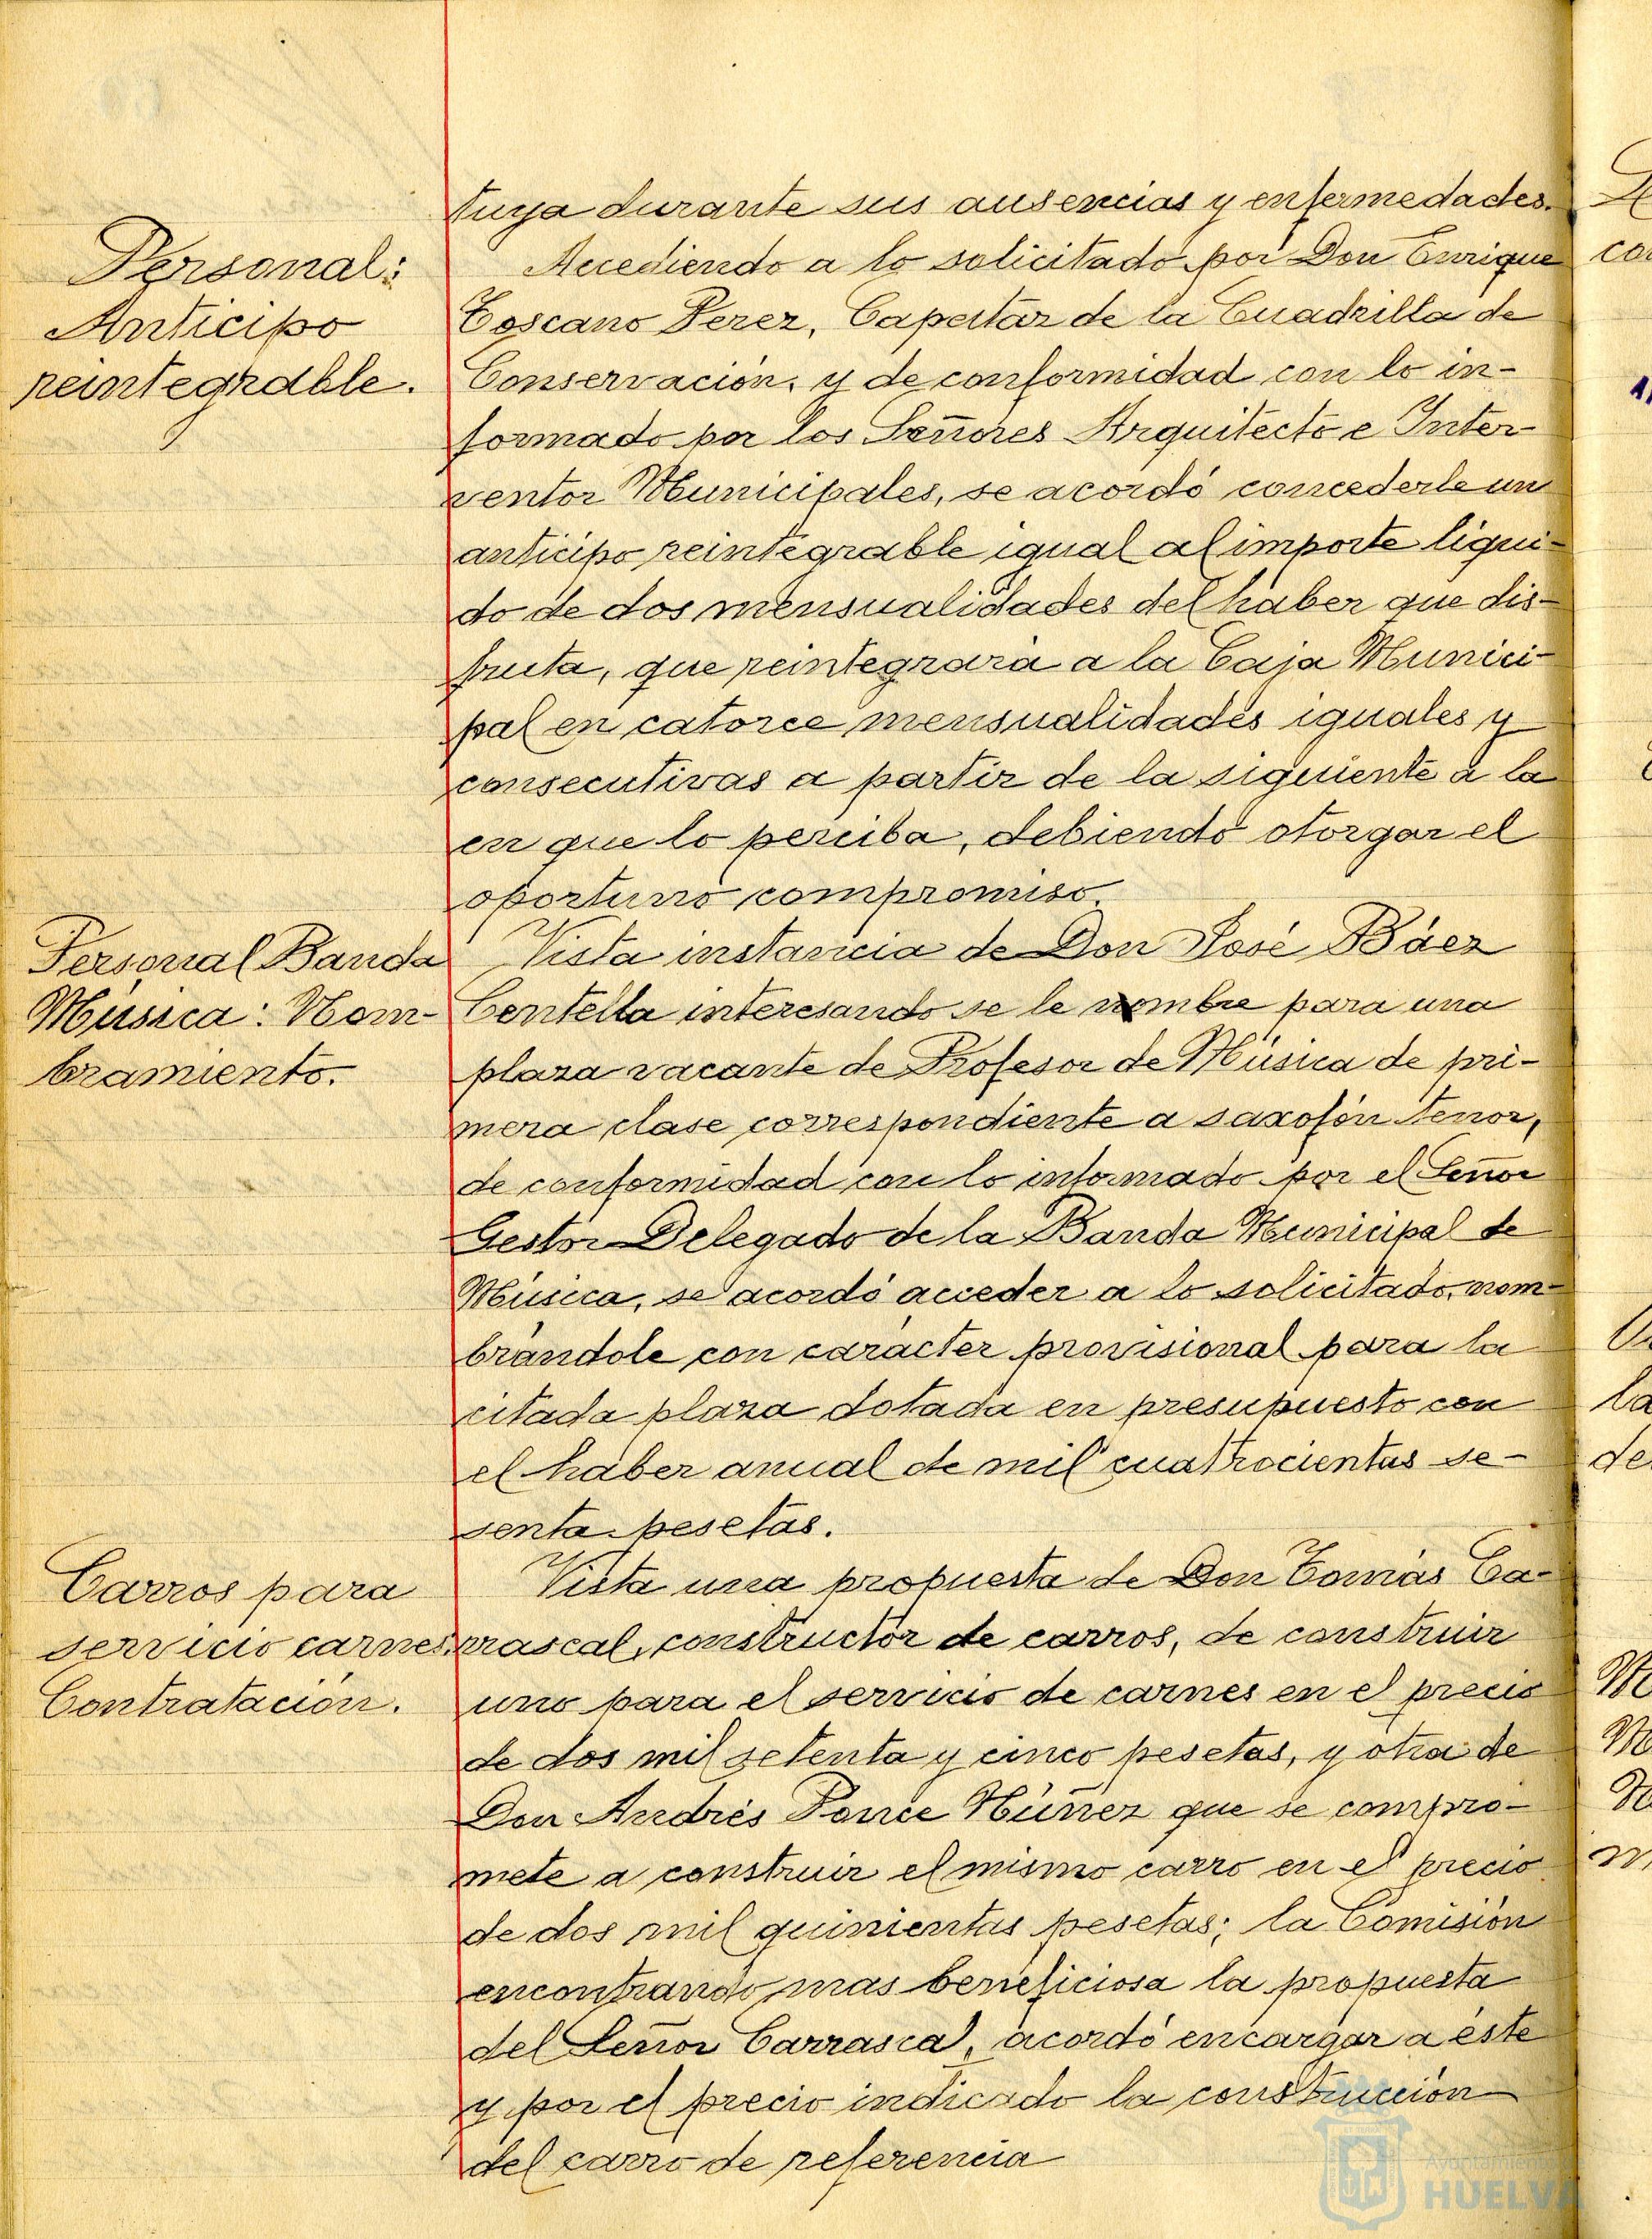 tuya durante sus ausencias y enfermedades.
Personal:
Anticipo
reintegrable.
Accediendo a lo solicitado por Don Enrique
Toscano Perez, Capataz de la Cuadrilla de
Conservación, y de conformidad con lo in-
formado por los Señores Arquitecto e Inter-
ventor Municipales, se acordó concederle un
anticipo reintegrable igual al importe liqui-
do de dos mensualidades del haber que dis-
fruta, que reintegrará a la Caja Munici-
pal en catorce mensualidades iguales y
consecutivas a partir de la siguiente a la
en que lo perciba, debiendo otorgar el
oportuno compromiso.
Personal Banda
Música: Nom-
bramiento.
Vista instancia de Don José Báez
Centella interesando se le nombre para una
plaza vacante de Profesor de Música de pri-
mera clase correspondiente a saxofón tenor,
de conformidad con lo informado por el Señor
Gestor Delegado de la Banda Municipal de
Música, se acordó acceder a lo solicitado, nom-
brándole con carácter provisional para la
citada plaza dotada en presupuesto con
el haber anual de mil cuatrocientas se-
senta pesetas.
Carros para
servicio carnes.
Contratación.
Vista una propuesta de Don Tomás Ca-
rrascal, constructor de carros, de construir
uno para el servicio de carnes en el precio
de dos mil setenta y cinco pesetas, y otra de
Don Andrés Ponce Núñez que se compro-
mete a construir el mismo carro en el precio
de dos mil quinientas pesetas; la Comisión
encontrando mas beneficiosa la propuesta
del Señor Carrascal, acordó encargar a éste
y por el precio indicado la construcción
del carro de referencia
Ayuntamiento
HUELVA